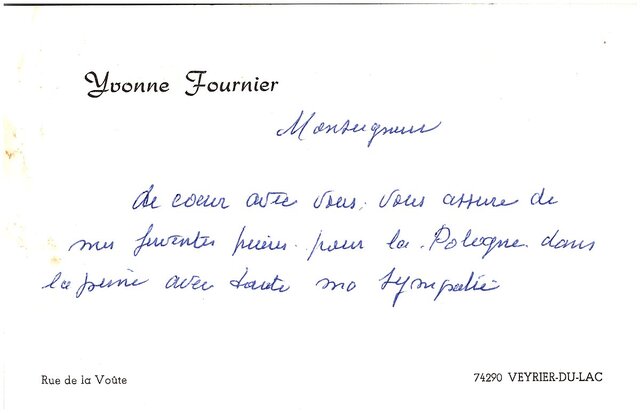 Yvonne Fournier
Monseigneur
de cœur avec vous, vous assure de
mes ferventes prières pour la Pologne dans
la peine avec toute ma sympathie
Rue de la Voûte
74290 VEYRIER-DU-LAC